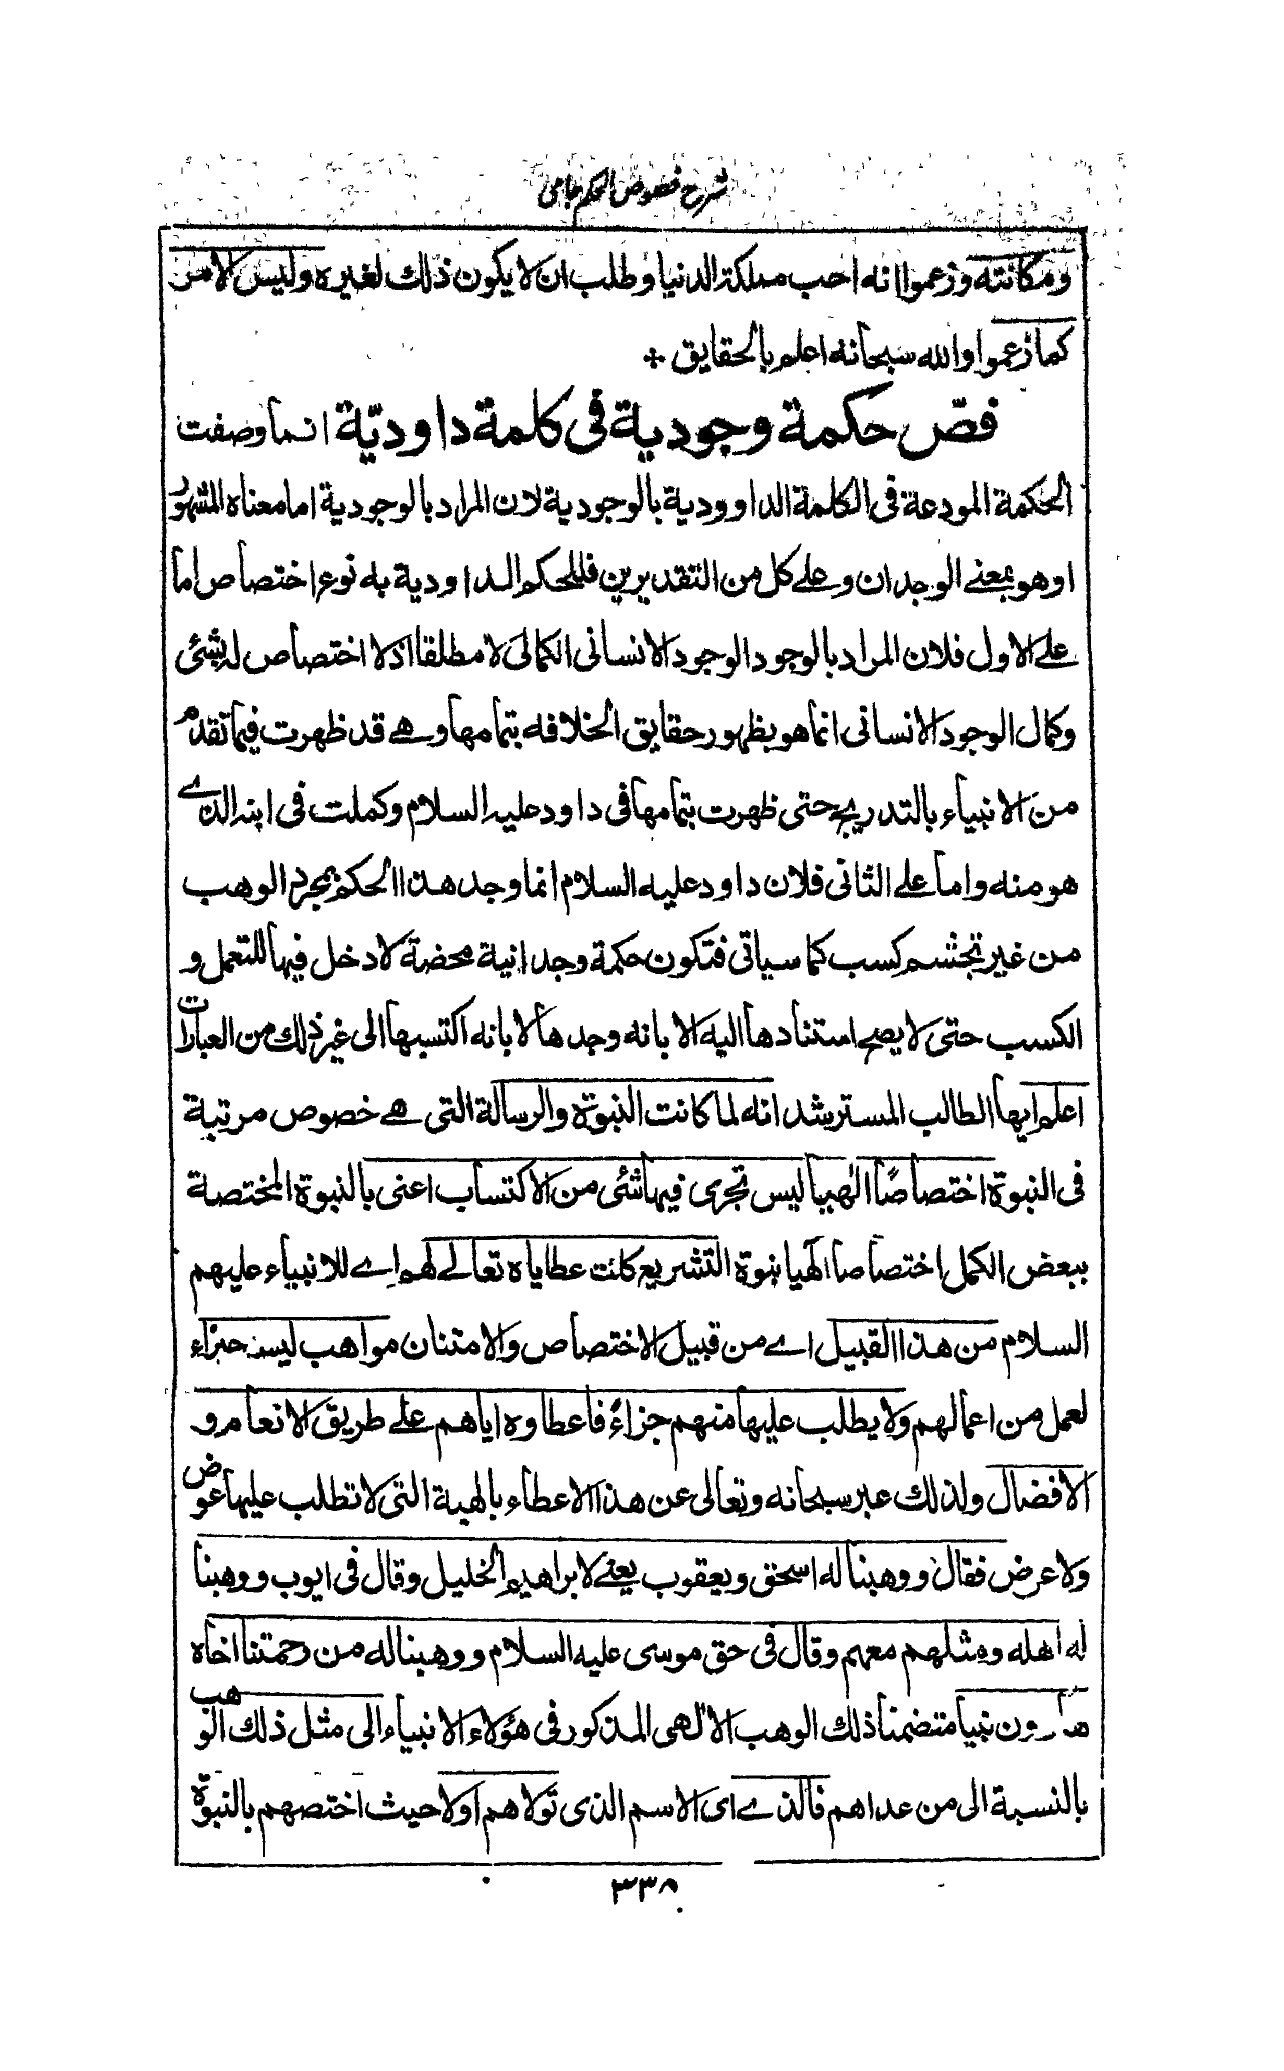 شرح فصوص الحكم جامى
ومكانته وزعموا انه احب مملكة الدنيا وطلب ان لا يكون ذلك لغيره وليس الامر
كما زعموا والله سبحانه اعلم بالحقايق
فصّ حكمة وجودية فى كلمة داوديّة انما وصفت
الحكمة المودعة فى الكلمة الداوودية بالوجودية لان المراد بالوجودية اما معناه المشهور
او هو بمعنے الوجدان وعلے كل من التقديرين فللحكم الداودية به نوع اختصاص اما
علے الاول فلان المراد بالوجود الوجود الانسانى الكمالى لا مطلقا اذ لا اختصاص له بشئى
وكمال الوجود الانسانى انما هو بظهور حقايق الخلافه بتمامها وهے قد ظهرت فيما تقدم
من الانبياء بالتدريج حتى ظهرت بتمامها فى داود عليه السلام وكملت فى ابنه الذے
هو منه واما علے الثانى فلان داود عليه السلام انما وجد هذا الحكم بمجرد الوهب
من غير تجشم كسب كما سياتى فتكون حكمة وجدانية محضة لا دخل فيها للتعمل و
الكسب حتى لا يصح استنادها اليه الا بانه وجدها لا بانه اكتسبها الى غير ذلك من العبارات
اعلم ايها الطالب المسترشد انه لما كانت النبوة والرسالة التى هے خصوص مرتبة
فى النبوة اختصاصًا الٰهيا ليس تجرى فيها شئى من الاكتساب اعنى بالنبوة المختصة
ببعض الكمل اختصاصا الٰهيا نبوة التشريع كانت عطاياه تعالے لهم اے للانبياء عليهم
السلام من هذا القبيل اے من قبيل الاختصاص والامتنان مواهب ليست جزاء
لعمل من اعمالهم ولا يطلب عليها منهم جزاءً فاعطاوه اياهم علے طريق الانعام و
الافضال ولذلك عبر سبحانه وتعالى عن هذا الاعطاء بالهبة التى لا تطلب عليها عوض
ولا عرض فقال ووهبنا له اسحق ويعقوب يعنے لابراهيم الخليل وقال فى ايوب ووهبنا
له اهله ومثلهم معهم وقال فى حق موسى عليه السلام ووهبنا له من رحمتنا اخاه
هارون نبيا متضمنا ذلك الوهب الالٰهى المذكور فى هؤلاء الانبياء الى مثل ذلك الوهب
بالنسبة الى من عداهم فالذے اى الاسم الذى تولاهم اولا حيث اختصهم بالنبوة
٣٣٨